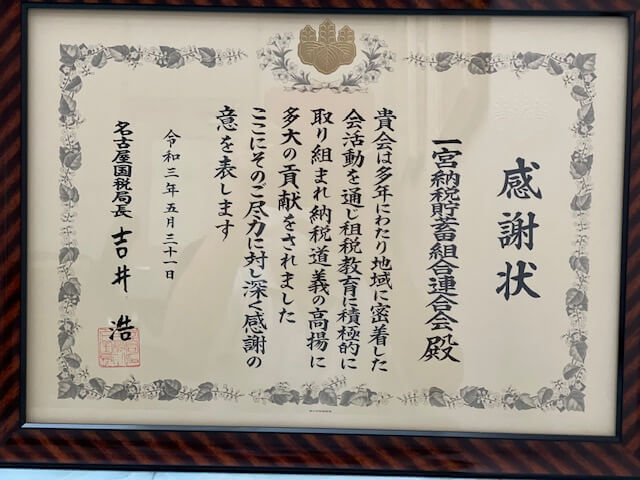 感謝状
一宮納税貯蓄組合連合会殿
貴会は多年にわたり地域に密着した
会活動を通じ租税教育に積極的に
取り組まれ納税道義の高揚に
多大の貢献をされました
ここにそのご尽力に対し深く感謝の
意を表します
令和三年五月三十一日
名古屋国税局長 吉井 浩